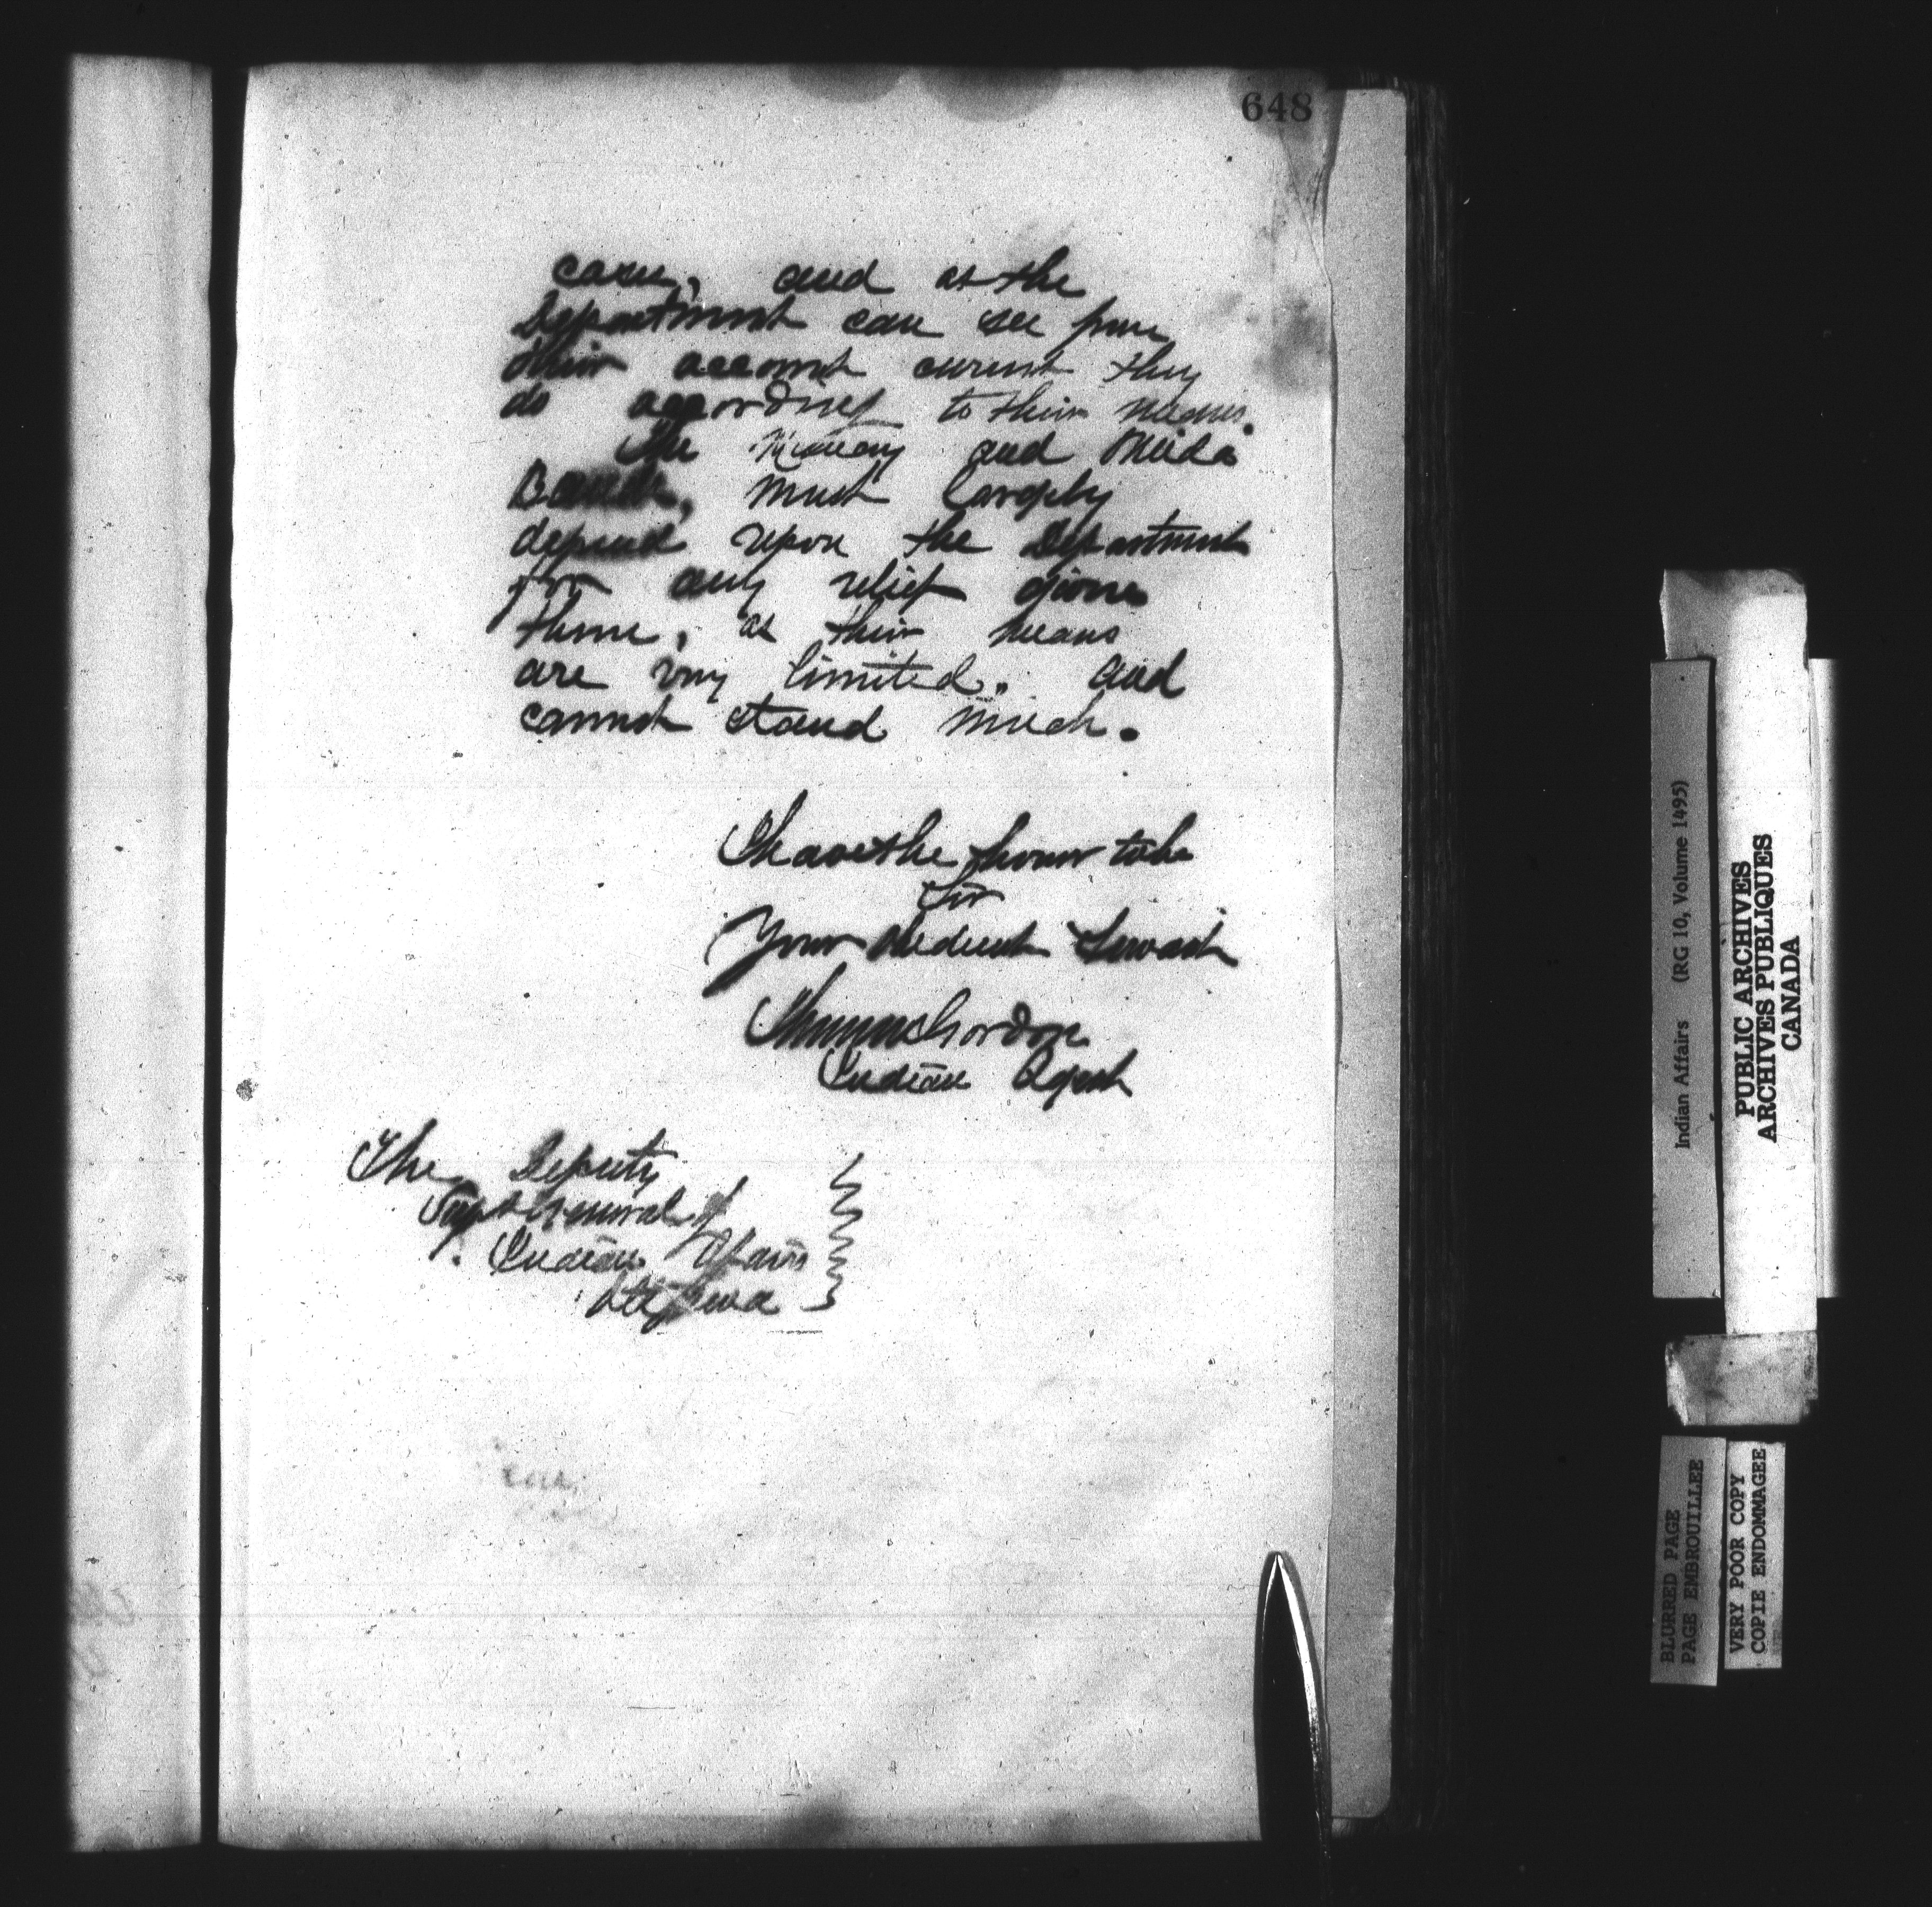 648
cases, and as the
Department can see from
their account current they
do according to their means.
The Muncey and Oneida
Bands, must largely
depend upon the Department
for any relief given
them, as their means
are very limited. and
cannot stand much.
I have the honor to be
Sir
Your obedient Servant
Thomas Gordon
Indian Agent
The Deputy
Supt General of
Indian Affairs
Ottawa
Indian Affairs (RG 10, Volume 1495)
PUBLIC ARCHIVES
ARCHIVES PUBLIQUES
CANADA
BLURRED PAGE
PAGE EMBROUILLEE
VERY POOR COPY
COPIE ENDOMMAGEE